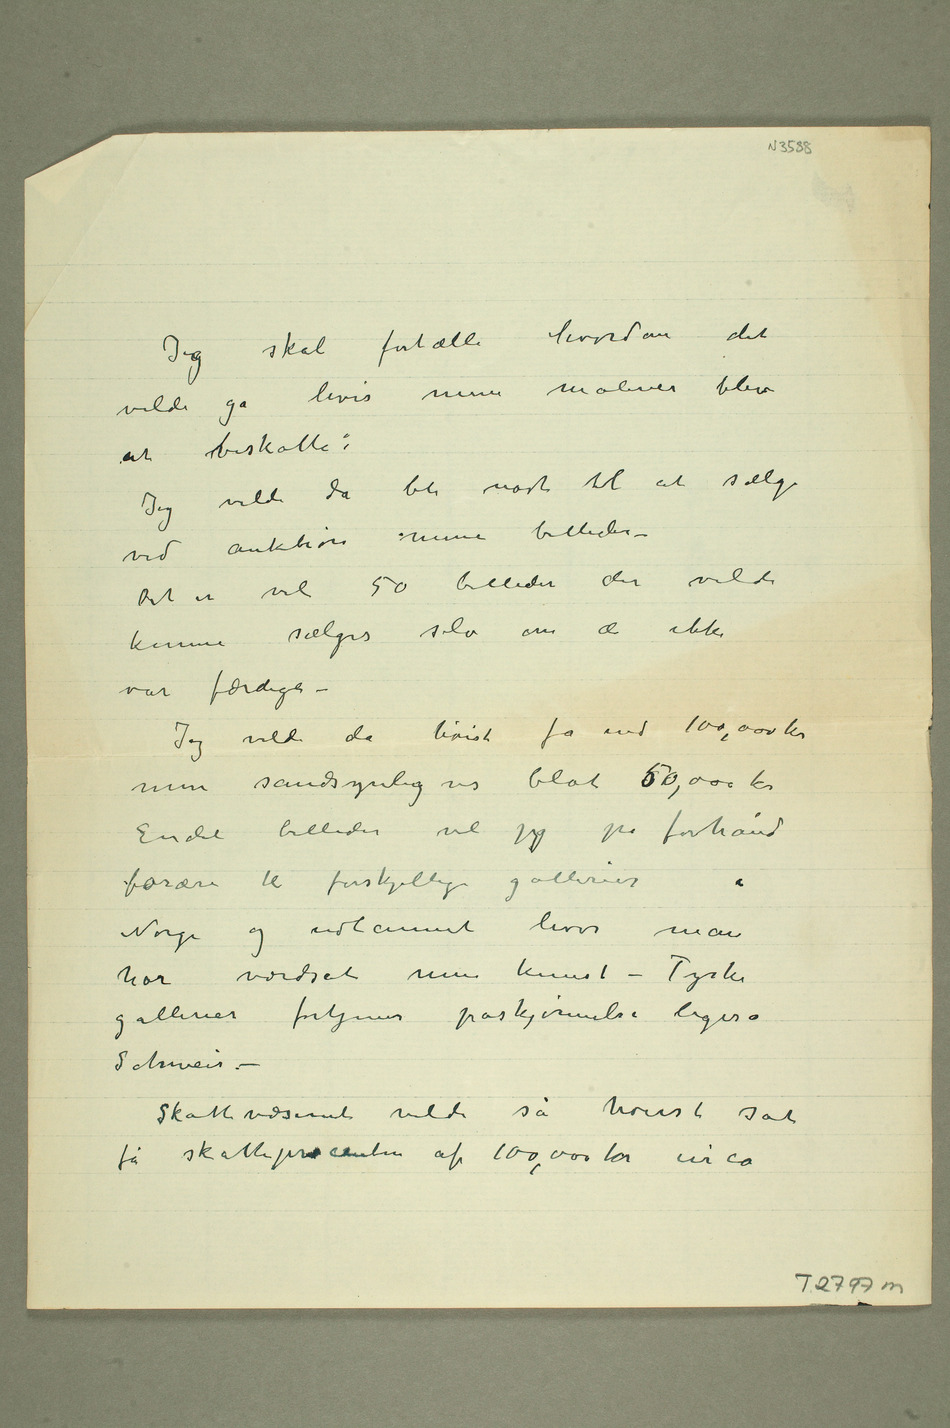 N3588
Jeg skal fortælle hvordan det
vilde gå hvis mine malerier blev
at beskatte:
Jeg vilde da bli nødt til at sælge
ved auktion mine billeder –
Det er vel 50 billeder der vilde
kunne sælges selv om de ikke
var færdige –
Jeg vilde da høist få ind 100,000 kr
men sandsynligvis blot 50,000 kr
Endel billeder vil jeg på forhånd
forære til forskjellige gallerier i
Norge og udlannet hvor man
har værdsat min kunst – Tyske
gallerier fortjener påskjønnelse ligeså
Schweis. –
Skattevæsenet vilde så høiest sat
få skatteprocenten af 100,000 kr circa
T2797m